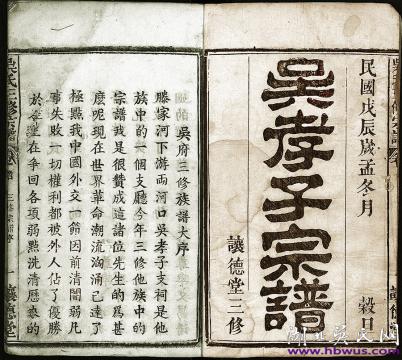 民國戊辰歲孟冬月
穀旦
吳孝子宗譜
讓德堂三修
讓德堂
吳府三修族譜大序
滕家河下游兩河口吳孝子支祠是他
族中的一個支廳今年三修他族中的
宗譜我是很贊成這諸位先生的為甚
麽呢現在世界革命潮流洶涌已達了
極點我中國外交一節因前清闇弱凡
事失敗一切權利都被外人佔了優勝
於
在爭回各項弱點洗清歷來的
一
讓德堂
湖北吳氏网
www.hbwus.com